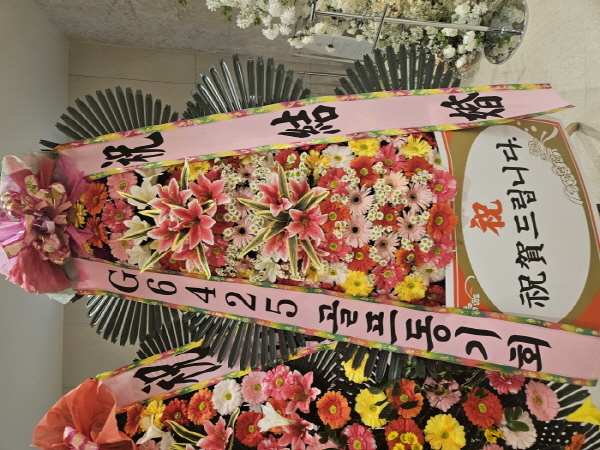 祝結婚
G6425 골프동기회
祝
祝賀드립니다.
祝